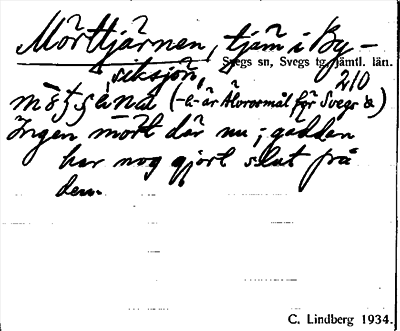 Mörttjärnen, tjärn i By-
siksjön,
Svegs sn, Svegs tg, Jämtl. län.
210
(-a- är Älvrosmål för Svegs a)
Ingen mört där nu; gäddan
har nog gjort slut på
dem.
C. Lindberg 1934.